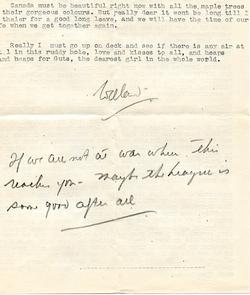 Canada must be beautiful right now with all the maple trees
their gorgeous colours. But really dear it wont be long till I
thaler for a good long leave, and we will have the time of our
fe when we get together again.
Really I must go up on deck and see if there is any air at
l in this ruddy hole, love and kisses to all, and heaps
and heaps for Outs, the dearest girl in the whole world.
If we are not at war when this
reaches you - maybe the League is
some good after all.